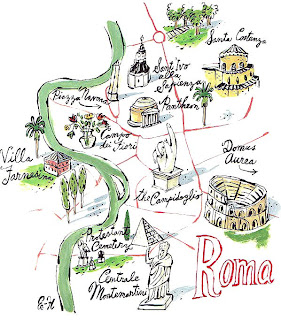 Santa Costanza
Sant'Ivo
alla
Sapienza
Piazza Navona
Pantheon
Campo
dei Fiori
Villa
Farnesina
Domus
Aurea
the Campidoglio
Protestant
Cemetery
Centrale
Montemartini
Roma